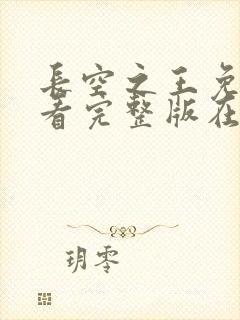 长空之王免
看完整版在
玥零